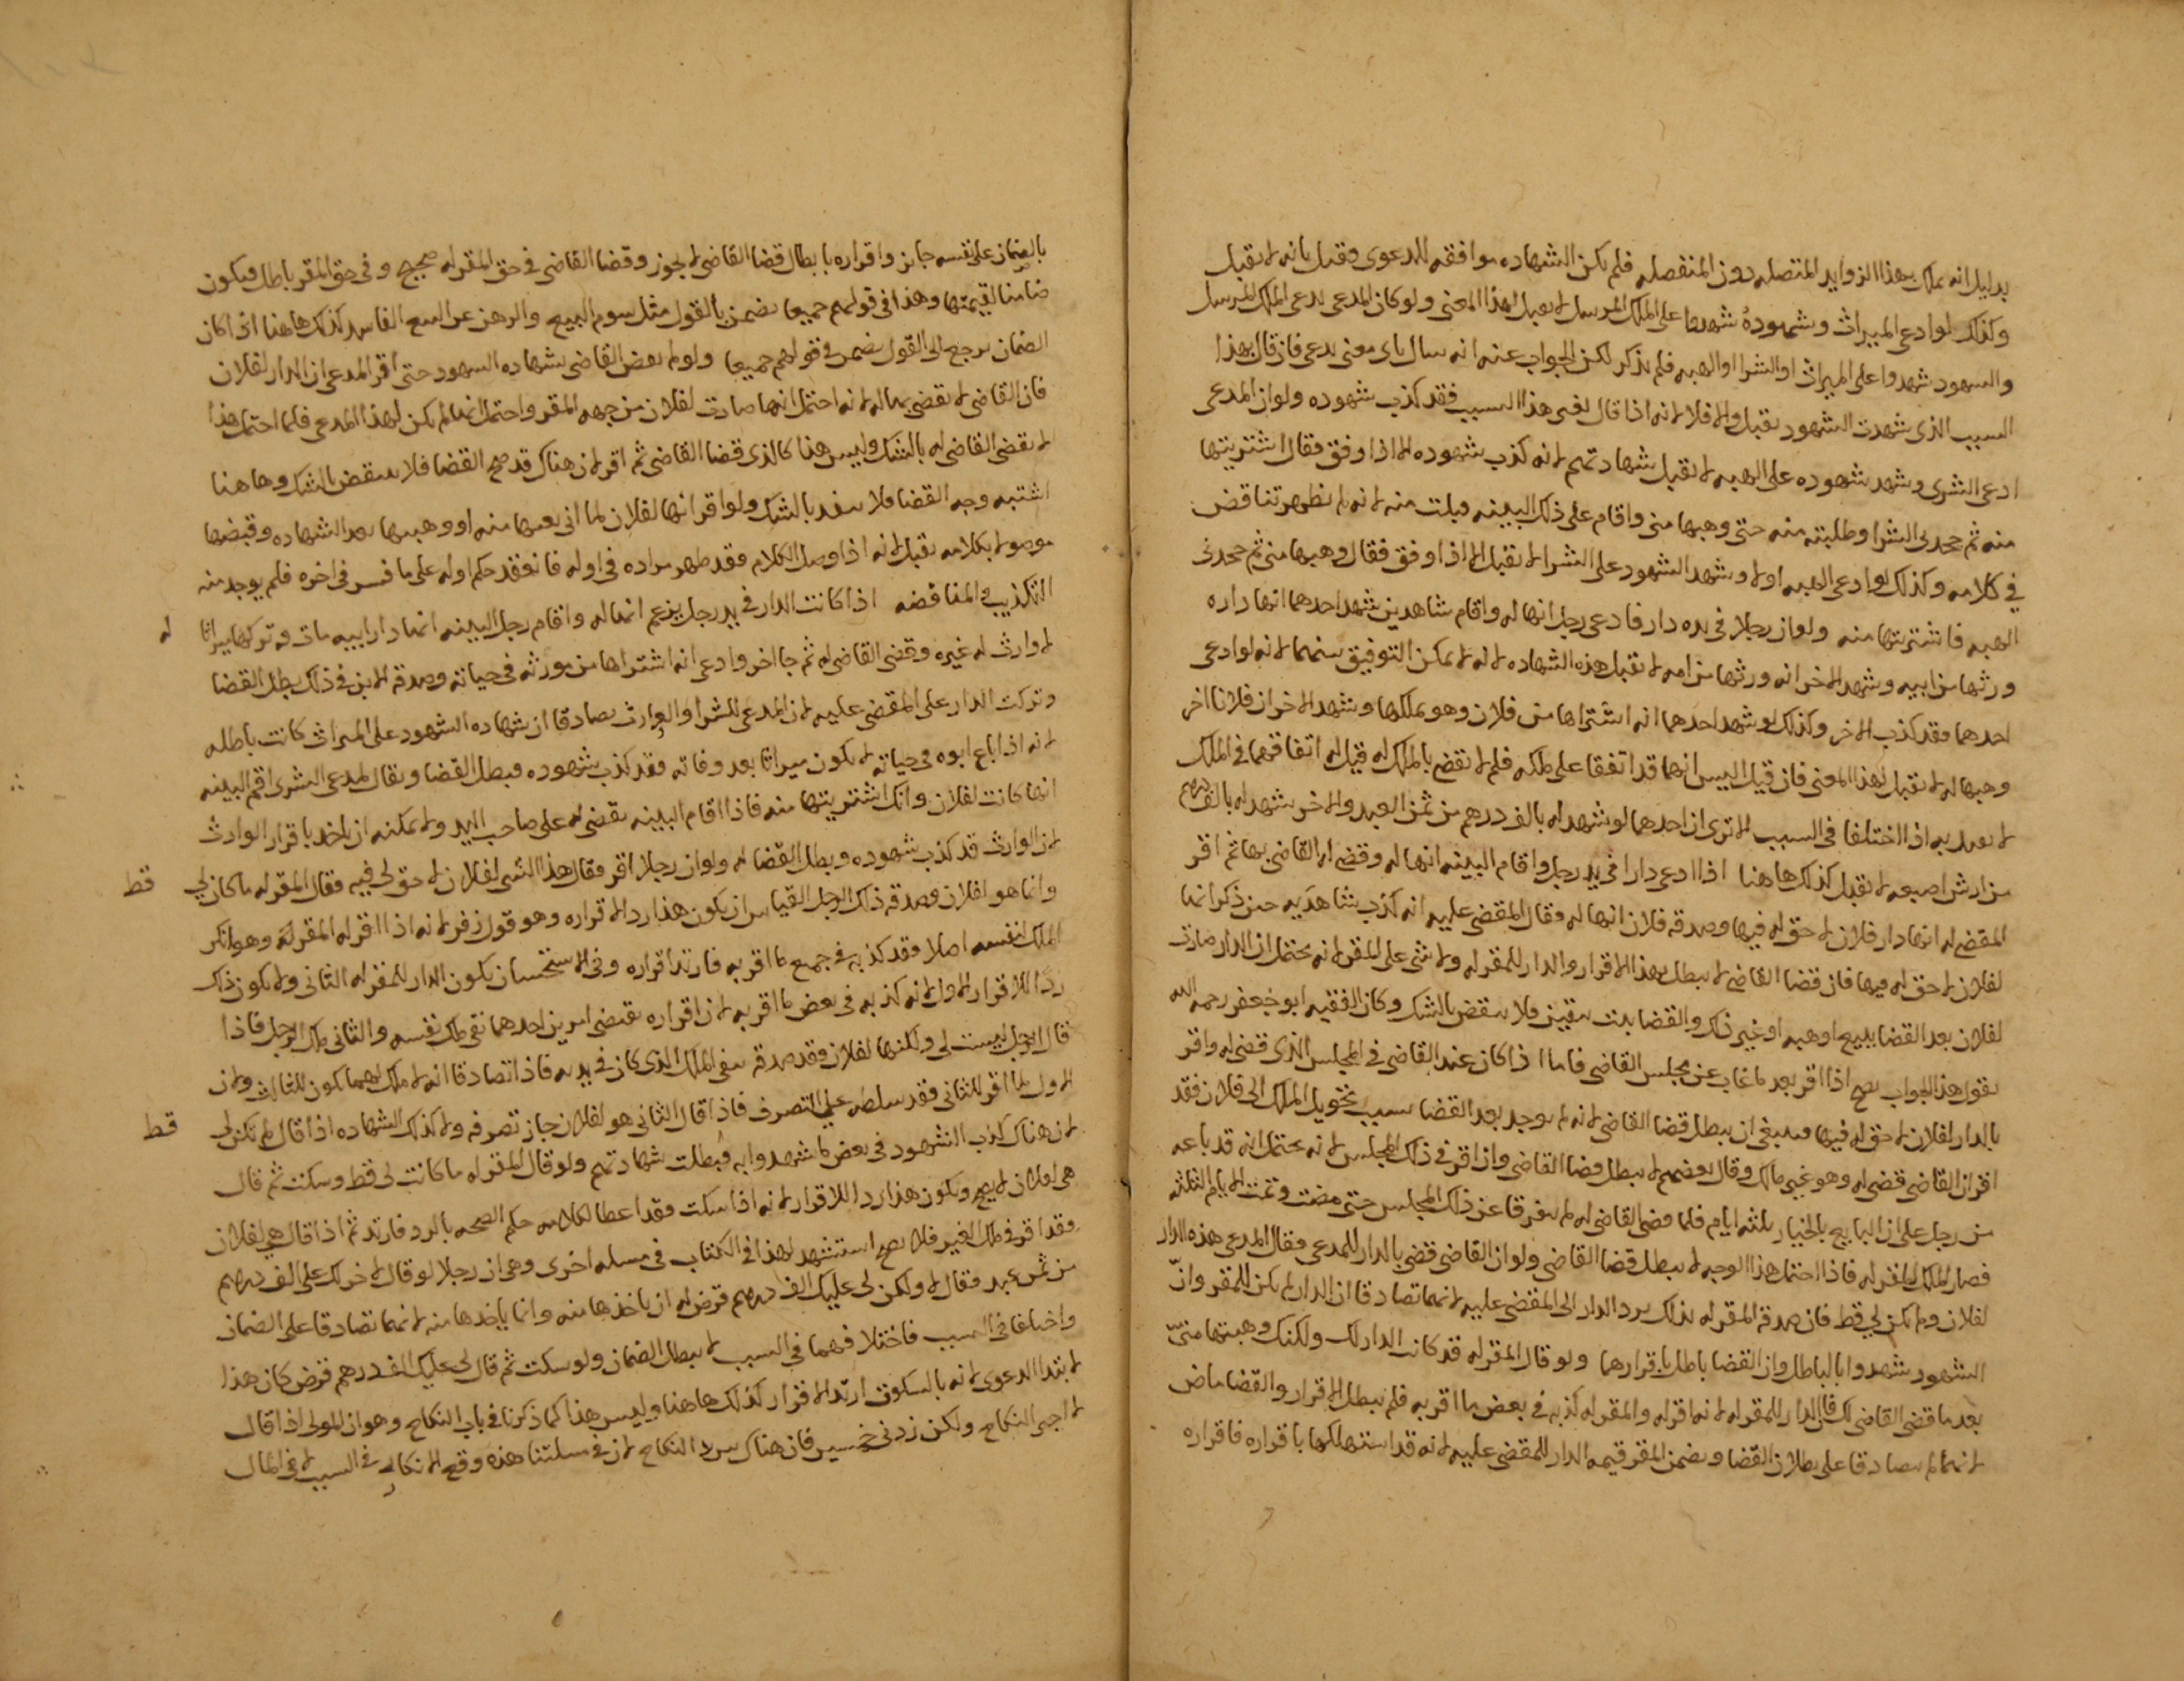 بدليل انه يملك بهذا الزوايد المتصله دون المنفصله فلم يكن الشهاده موافقه للدعوى وقيل بانه لا يقبل
وكذلك لو ادعى الميراث وشهوده شهدوا على الملك المرسل لا يقبل لهذا المعنى ولو كان المدعى يدعى الملك المرسل
والشهود شهدوا على الميراث او الشرا او الهبه فلم يذكر لكن الجواب عنه انه يسال باى معنى يدعى فان قال بهذا
السبب الذى شهدت الشهود يقبل والا فلا لانه اذا قال لغير هذا السبب فقد كذب شهوده ولو ان المدعى
ادعى الشرى وشهد شهوده على الهبه لا يقبل شهادتهم لانه كذب شهوده الا اذا وفق فقال اشتريتها
منه ثم جحدنى الشرا وطلبته منه حتى وهبها منى واقام على ذلك البينه قبلت منه لانه لم يظهر تناقض
فى كلامه وكذلك لو ادعى الهبه اولا وشهد الشهود على الشرا لا يقبل الا اذا وفق فقال وهبها منى ثم جحدنى
الهبه فاشتريتها منه ولو ان رجلا فى يده دار فادعى رجل انها له واقام شاهدين شهد احدهما انها داره
ورثها من ابيه وشهد الاخر انه ورثها من امه لا تقبل هذه الشهاده لانه لا يمكن التوفيق بينهما لانه لو ادعى
احدهما فقد كذب الاخر وكذلك لو شهد احدهما انه اشتراها من فلان وهو يملكها وشهد الاخر ان فلانا اخر
وهبها له لا تقبل لهذا المعنى فان قيل اليس انهما قد اتفقا على ملكه فلم لا تقضى بالملك له قيل له اتفاقهما فى الملك
لا يعتد به اذا اختلفا فى السبب الا ترى ان احدهما لو شهد له بالف درهم من ثمن العبد والاخر شهد له بالف درهم
من ارش اصبعه لا تقبل كذلك هاهنا اذا ادعى دارا فى يد رجل واقام البينه انها له وقضى له القاضى بها ثم اقر
المقضى له انها دار فلان لا حق له فيها وصدقه فلان انها له وقال المقضى عليه انه كذب شاهديه حين ذكر انها
لفلان لا حق له فيها فان قضا القاضى لا يبطل بهذا الاقرار والدار للمقر له ولا شى على المقر لانه يحتمل ان الدار صارت
لفلان بعد القضا ببيع او هبه او غير ذلك والقضا ثبت بيقين فلا ينقض بالشك وكان الفقيه ابو جعفر رحمه الله
يقول هذا الجواب يصح اذا اقر بعد ما غاب عن مجلس القاضى فاما اذا كان عند القاضى فى المجلس الذى قضى له واقر
بالدار لفلان لا حق له فيها فينبغى ان يبطل قضا القاضى لانه لم يوجد بعد القضا سبب تحويل الملك الى فلان فقد
اقر ان القاضى قضى له وهو غير مالك وقال بعضهم لا يبطل قضا القاضى وان اقر فى ذلك المجلس لانه يحتمل انه قد باعه
من رجل على ان البايع بالخيار ثلثه ايام فلما قضى القاضى له لم يتفرقا عن ذلك المجلس حتى مضت وتمت الايام الثلثه
فصار الملك للمقر له فاذا احتمل هذا الوجه لا يبطل قضا القاضى ولو ان القاضى قضى بالدار للمدعى فقال المدعى هذه الدار
لفلان ولم تكن لى قط فان صدقه المقر له بذلك يرد الدار الى المقضى عليه لانهما تصادقا ان الدار لم يكن للمقر وان
الشهود شهدوا بالباطل وان القضا باطل باقرارهما ولو قال المقر له قد كانت الدار لك ولكنك وهبتها منى
بعد ما قضى القاضى لك قال الدار للمقر له لانه اقر له والمقر له كذبه فى بعض ما اقر به فلم يبطل الاقرار والقضا ماض
لانهما لم يتصادقا على بطلان القضا ويضمن المقر قيمه الدار للمقضى عليه لانه قد استهلكها باقراره فاقراره
بالضمان على نفسه جايز واقراره بابطال قضا القاضى لا يجوز وقضا القاضى فى حق المقر له صحيح وفى حق المقر باطل فيكون
ضامنا لقيمتها وهذا فى قولهم جميعا يضمن بالقول مثل سوم البيع والرهن عن البيع الفاسد كذلك هاهنا اذا كان
الضمان يرجع الى القول يضمن فى قولهم جميعا ولو لم يقض القاضى بشهاده الشهود حتى اقر المدعى ان الدار لفلان
فان القاضى لا يقضى بها له لانه احتمل انها صارت لفلان من جهه المقر واحتمل انها لم يكن لهذا المدعى فلما احتمل هذا
لا يقضى القاضى له بالشك وليس هذا كالذى قضا القاضى ثم اقر لان هناك قد صح القضا فلا ينقض بالشك وهاهنا
اشتبه وجه القضا فلا ينفد بالشك ولو اقر انها لفلان لما انى بعتها منه او وهبتها بعد الشهاده وقبضها
موصولا بكلامه يقبل لانه اذا وصل الكلام فقد ظهر مراده فى اوله فانعقد حكم اوله على ما فسر فى اخره فلم يوجد منه
التكذيب والمناقضه اذا كانت الدار فى يد رجل يزعم انها له واقام رجل البينه انها دار ابيه مات وتركها ميراثا له
لا وارث له غيره وقضى القاضى له ثم جا اخر وادعى انه اشتراها من مورثه فى حياته وصدقه الابن فى ذلك بطل القضا
وتركت الدار على المقضى عليه لان المدعى للشرا والوارث تصادقا ان شهاده الشهود على الميراث كانت باطله
لانه اذا باع ابوه فى حياته لا يكون ميراثا بعد وفاته فقد كذب شهوده فبطل القضا ويقال لمدعى الشرى اقم البينه
انها كانت لفلان وانك اشتريتها منه فاذا اقام البينه يقضى له على صاحب اليد ولا يمكنه ان ياخذ باقرار الوارث
لان الوارث قد كذب شهوده وبطل القضا له ولو ان رجلا اقر فقال هذا الشى لفلان لا حق لى فيه فقال المقر له ما كان لى قط
وانما هو لفلان وصدقه ذلك الرجل القياس ان يكون هذا رد الاقراره وهو قول زفر لانه اذا اقر له المقر له وهو انكر
الملك لنفسه اصلا فقد كذبه فى جميع ما اقر به فارتد اقراره وفى الاستحسان يكون الدار للمقر له الثانى ولا يكون ذلك
ردا للاقرار الاول لانه كذبه فى بعض ما اقر به لان اقراره يقتضى امرين احدهما نفى ملك نفسه والثانى ملك الرجل فاذا
قال الرجل ليست لى ولكنها لفلان فقد صدقه بنفى الملك الذى كان فى يده فاذا تصادقا انه لا ملك لهما يكون للثالث ولان
الاول لما اقر للثانى فقد سلطه على التصرف فاذا قال الثانى هو لفلان جاز تصرفه ولا كذلك الشهاده اذا قال لم تكن لى قط
لان هناك كذب الشهود فى بعض ما شهدوا به فبطلت شهادتهم ولو قال المقر له ما كانت لى قط وسكت ثم قال
هى لفلان لا يصح ويكون هذا ردا للاقرار لانه اذا سكت فقد اعطا لكلامه حكم الصحه بالرد فارتد ثم اذا قال هى لفلان
فقد اقر فى ملك الغير فلا يصح استشهد لهذا فى الكتاب فى مسله اخرى وهى ان رجلا لو قال لاخر لك على الف درهم
من ثمن عبد فقال لا ولكن لى عليك الف درهم قرض له ان ياخذها منه وانما ياخذها منه لانهما تصادقا على الضمان
واختلفا فى السبب فاختلافهما فى السبب لا يبطل الضمان ولو سكت ثم قال لى عليك الف درهم قرض كان هذا
لابتدا الدعوى لانه بالسكوت ارتد الاقرار كذلك هاهنا وليس هذا كما ذكرنا فى باب النكاح وهو ان المولى اذا قال
لا اجيز النكاح ولكن زدنى خمسين فان هناك يرد النكاح لان فى مسلتنا هذه وقع الانكار فى السبب لا فى المال